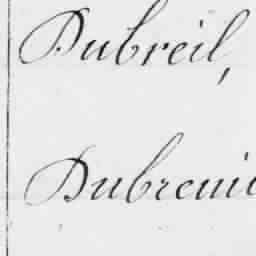 Dubreil,
Dubreui